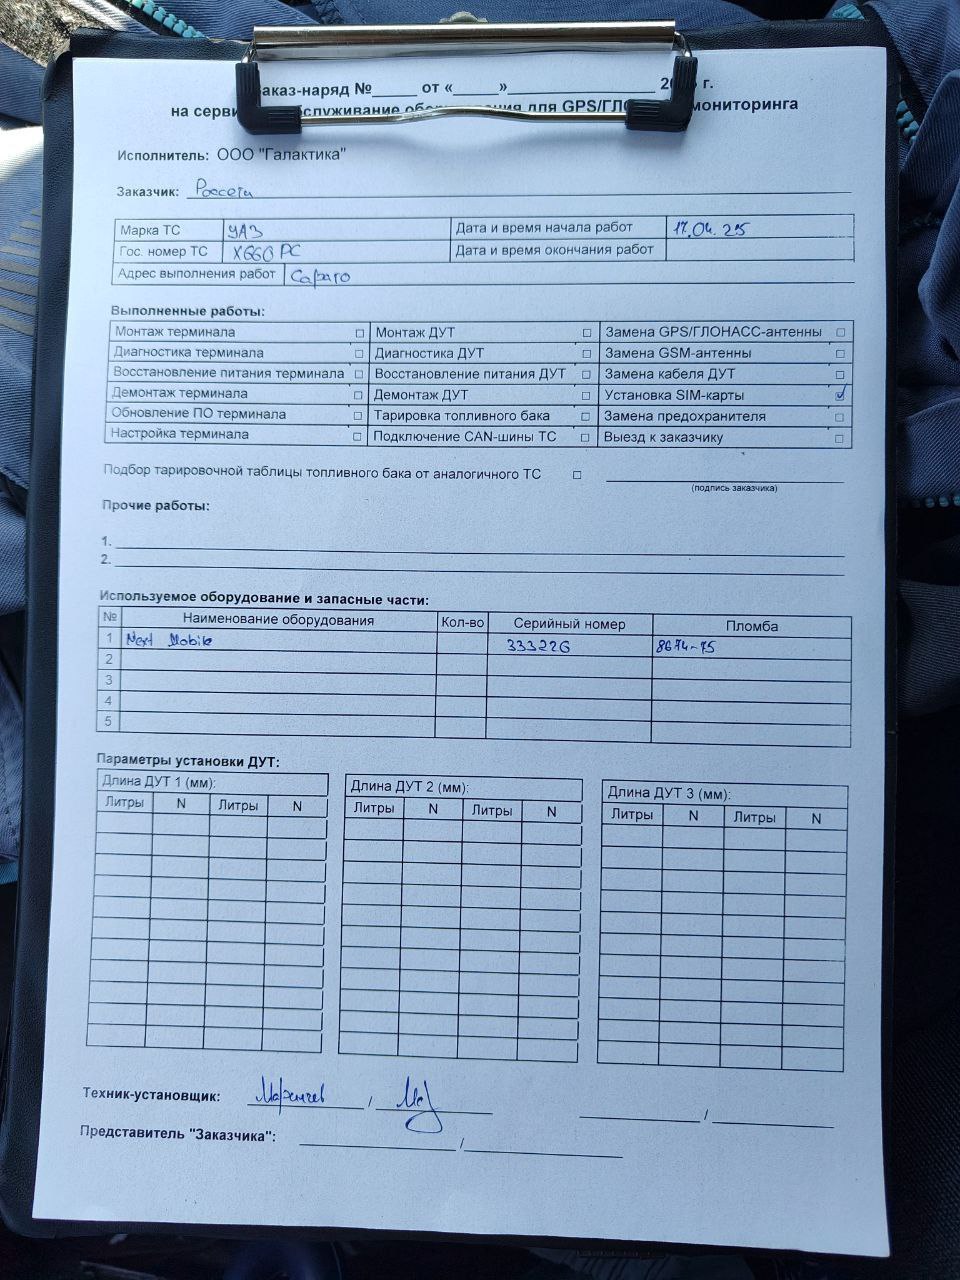 аказ-наряд №_____ от «_____»_________________ 2 г.
на серви служивание обор ния для GPS/ГЛО мониторинга
Исполнитель: ООО "Галактика"
Заказчик: Россети
Марка ТС УАЗ Дата и время начала работ 17.04.25
Гос. номер ТС Х660РС Дата и время окончания работ
Адрес выполнения работ
Выполненные работы:
Монтаж терминала □ Монтаж ДУТ □ Замена GPS/ГЛОНАСС-антенны □
Диагностика терминала □ Диагностика ДУТ □ Замена GSM-антенны □
Восстановление питания терминала □ Восстановление питания ДУТ □ Замена кабеля ДУТ □
Демонтаж терминала □ Демонтаж ДУТ □ Установка SIM-карты ☑
Обновление ПО терминала □ Тарировка топливного бака □ Замена предохранителя □
Настройка терминала □ Подключение CAN-шины ТС □ Выезд к заказчику □
Подбор тарировочной таблицы топливного бака от аналогичного ТС □
(подпись заказчика)
Прочие работы:
1.
2.
Используемое оборудование и запасные части:
№ Наименование оборудования Кол-во Серийный номер Пломба
1 Next Mobile 333226 8674-75
2
3
4
5
Параметры установки ДУТ:
Длина ДУТ 1 (мм): Длина ДУТ 2 (мм): Длина ДУТ 3 (мм):
Литры N Литры N Литры N Литры N Литры N Литры N
Техник-установщик: / /
Представитель "Заказчика": /